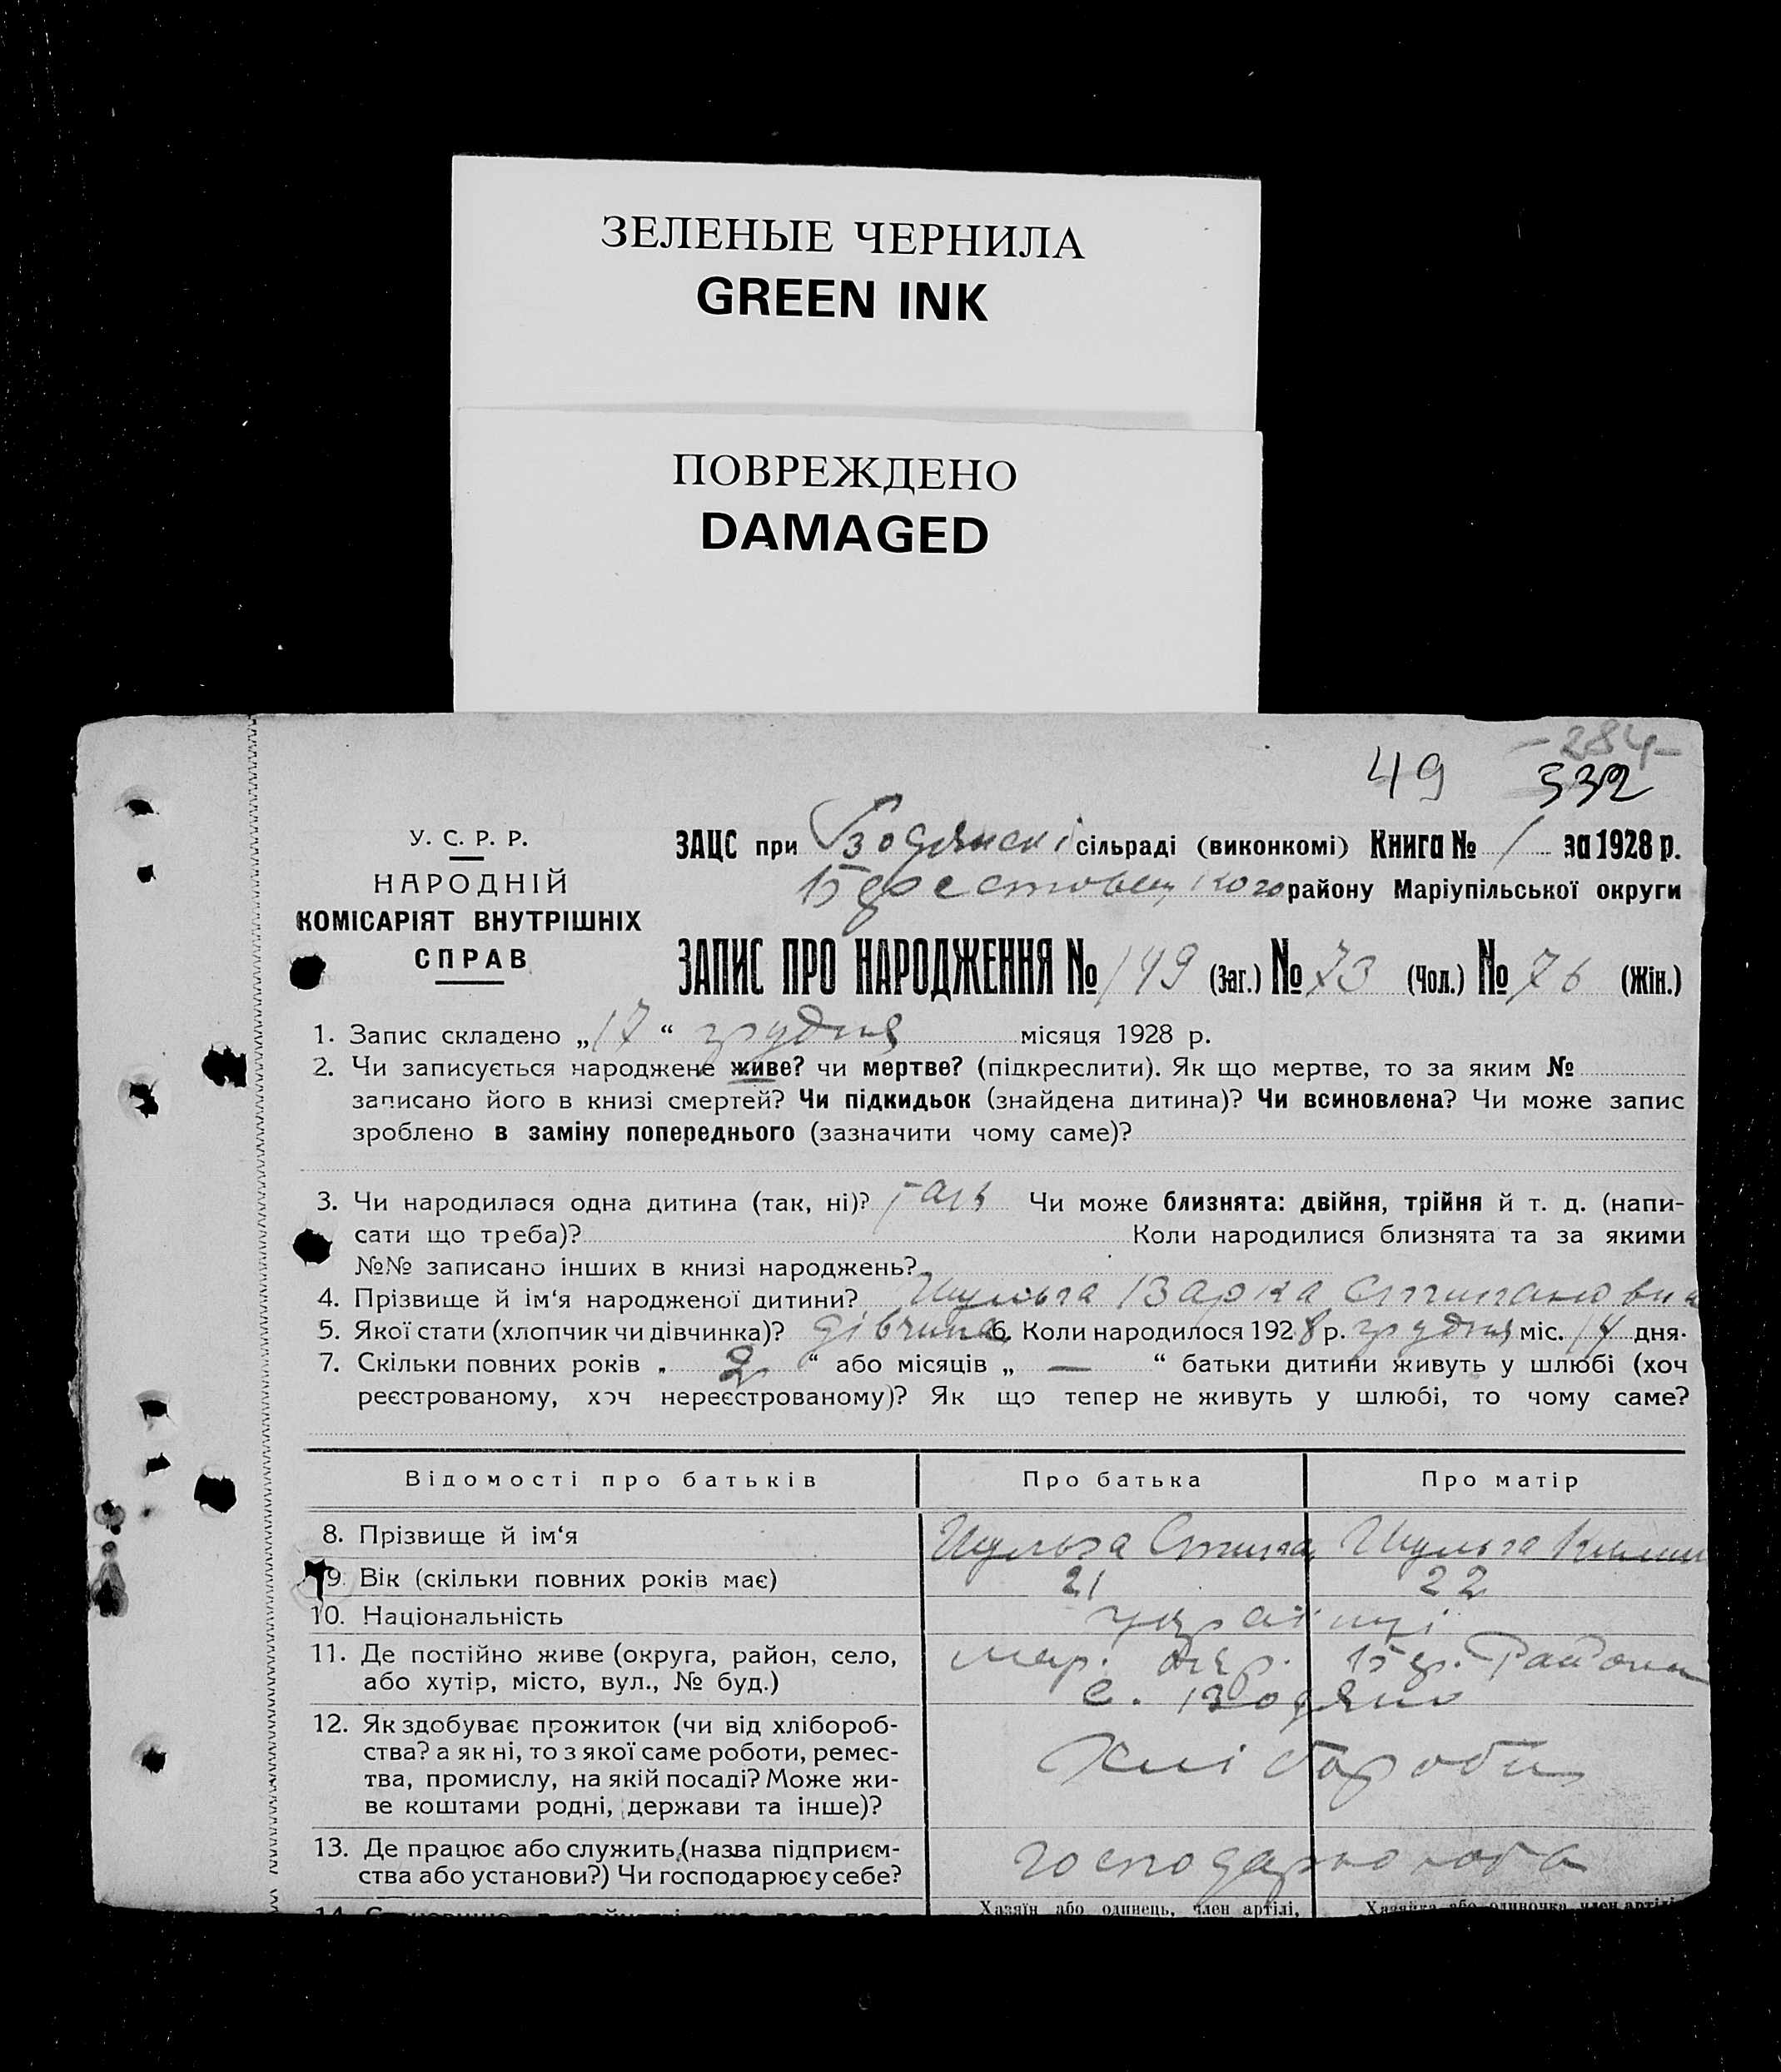 ЗЕЛЕНЫЕ ЧЕРНИЛА
GREEN INK
ПОВРЕЖДЕНО
DAMAGED
-284-
49 332
У. С. Р. Р.
НАРОДНІЙ
КОМІСАРІЯТ ВНУТРІШНІХ
СПРАВ
ЗАЦС при Водянскі сільраді (виконкомі) Книга № 1 за 1928 р.
району Маріупільської округи
ЗАПИС ПРО НАРОДЖЕННЯ № 149 (Заг.) № 73 (Чол.) № 76 (Жін.)
1. Запис складено „17“ грудня місяця 1928 р.
2. Чи записується народжене живе? чи мертве? (підкреслити). Як що мертве, то за яким №
записано його в книзі смертей? Чи підкидьок (знайдена дитина)? Чи всиновлена? Чи може запис
зроблено в заміну попереднього (зазначити чому саме)?
3. Чи народилася одна дитина (так, ні)? так Чи може близнята: двійня, трійня й т. д. (напи-
сати що треба)? Коли народилися близнята та за якими
№№ записано інших в книзі народжень?
4. Прізвище й ім‘я народженої дитини? Шульга Варка
5. Якої стати (хлопчик чи дівчинка)? дівчина 6. Коли народилося 1928 р. грудня міс. 14 дня.
7. Скільки повних років „ 2 “ або місяців „ — “ батьки дитини живуть у шлюбі (хоч
реєстрованому, хоч нереєстрованому)? Як що тепер не живуть у шлюбі, то чому саме?
Відомості про батьків Про батька Про матір
8. Прізвище й ім‘я Шульга Шульга
9. Вік (скільки повних років має) 21 22
10. Національність українці
11. Де постійно живе (округа, район, село, Мар. окр. Бер. Района
або хутір, місто, вул., № буд.) с. Водяно
12. Як здобуває прожиток (чи від хлібороб-
ства? а як ні, то з якої саме роботи, ремес- Хлібороби
тва, промислу, на якій посаді? Може жи-
ве коштами родні, держави та інше)?
13. Де працює або служить (назва підприєм-
ства або установи?) Чи господарює у себе?
Хазяїн або одинець, член артілі, Хазяйка або одиночка, член артілі